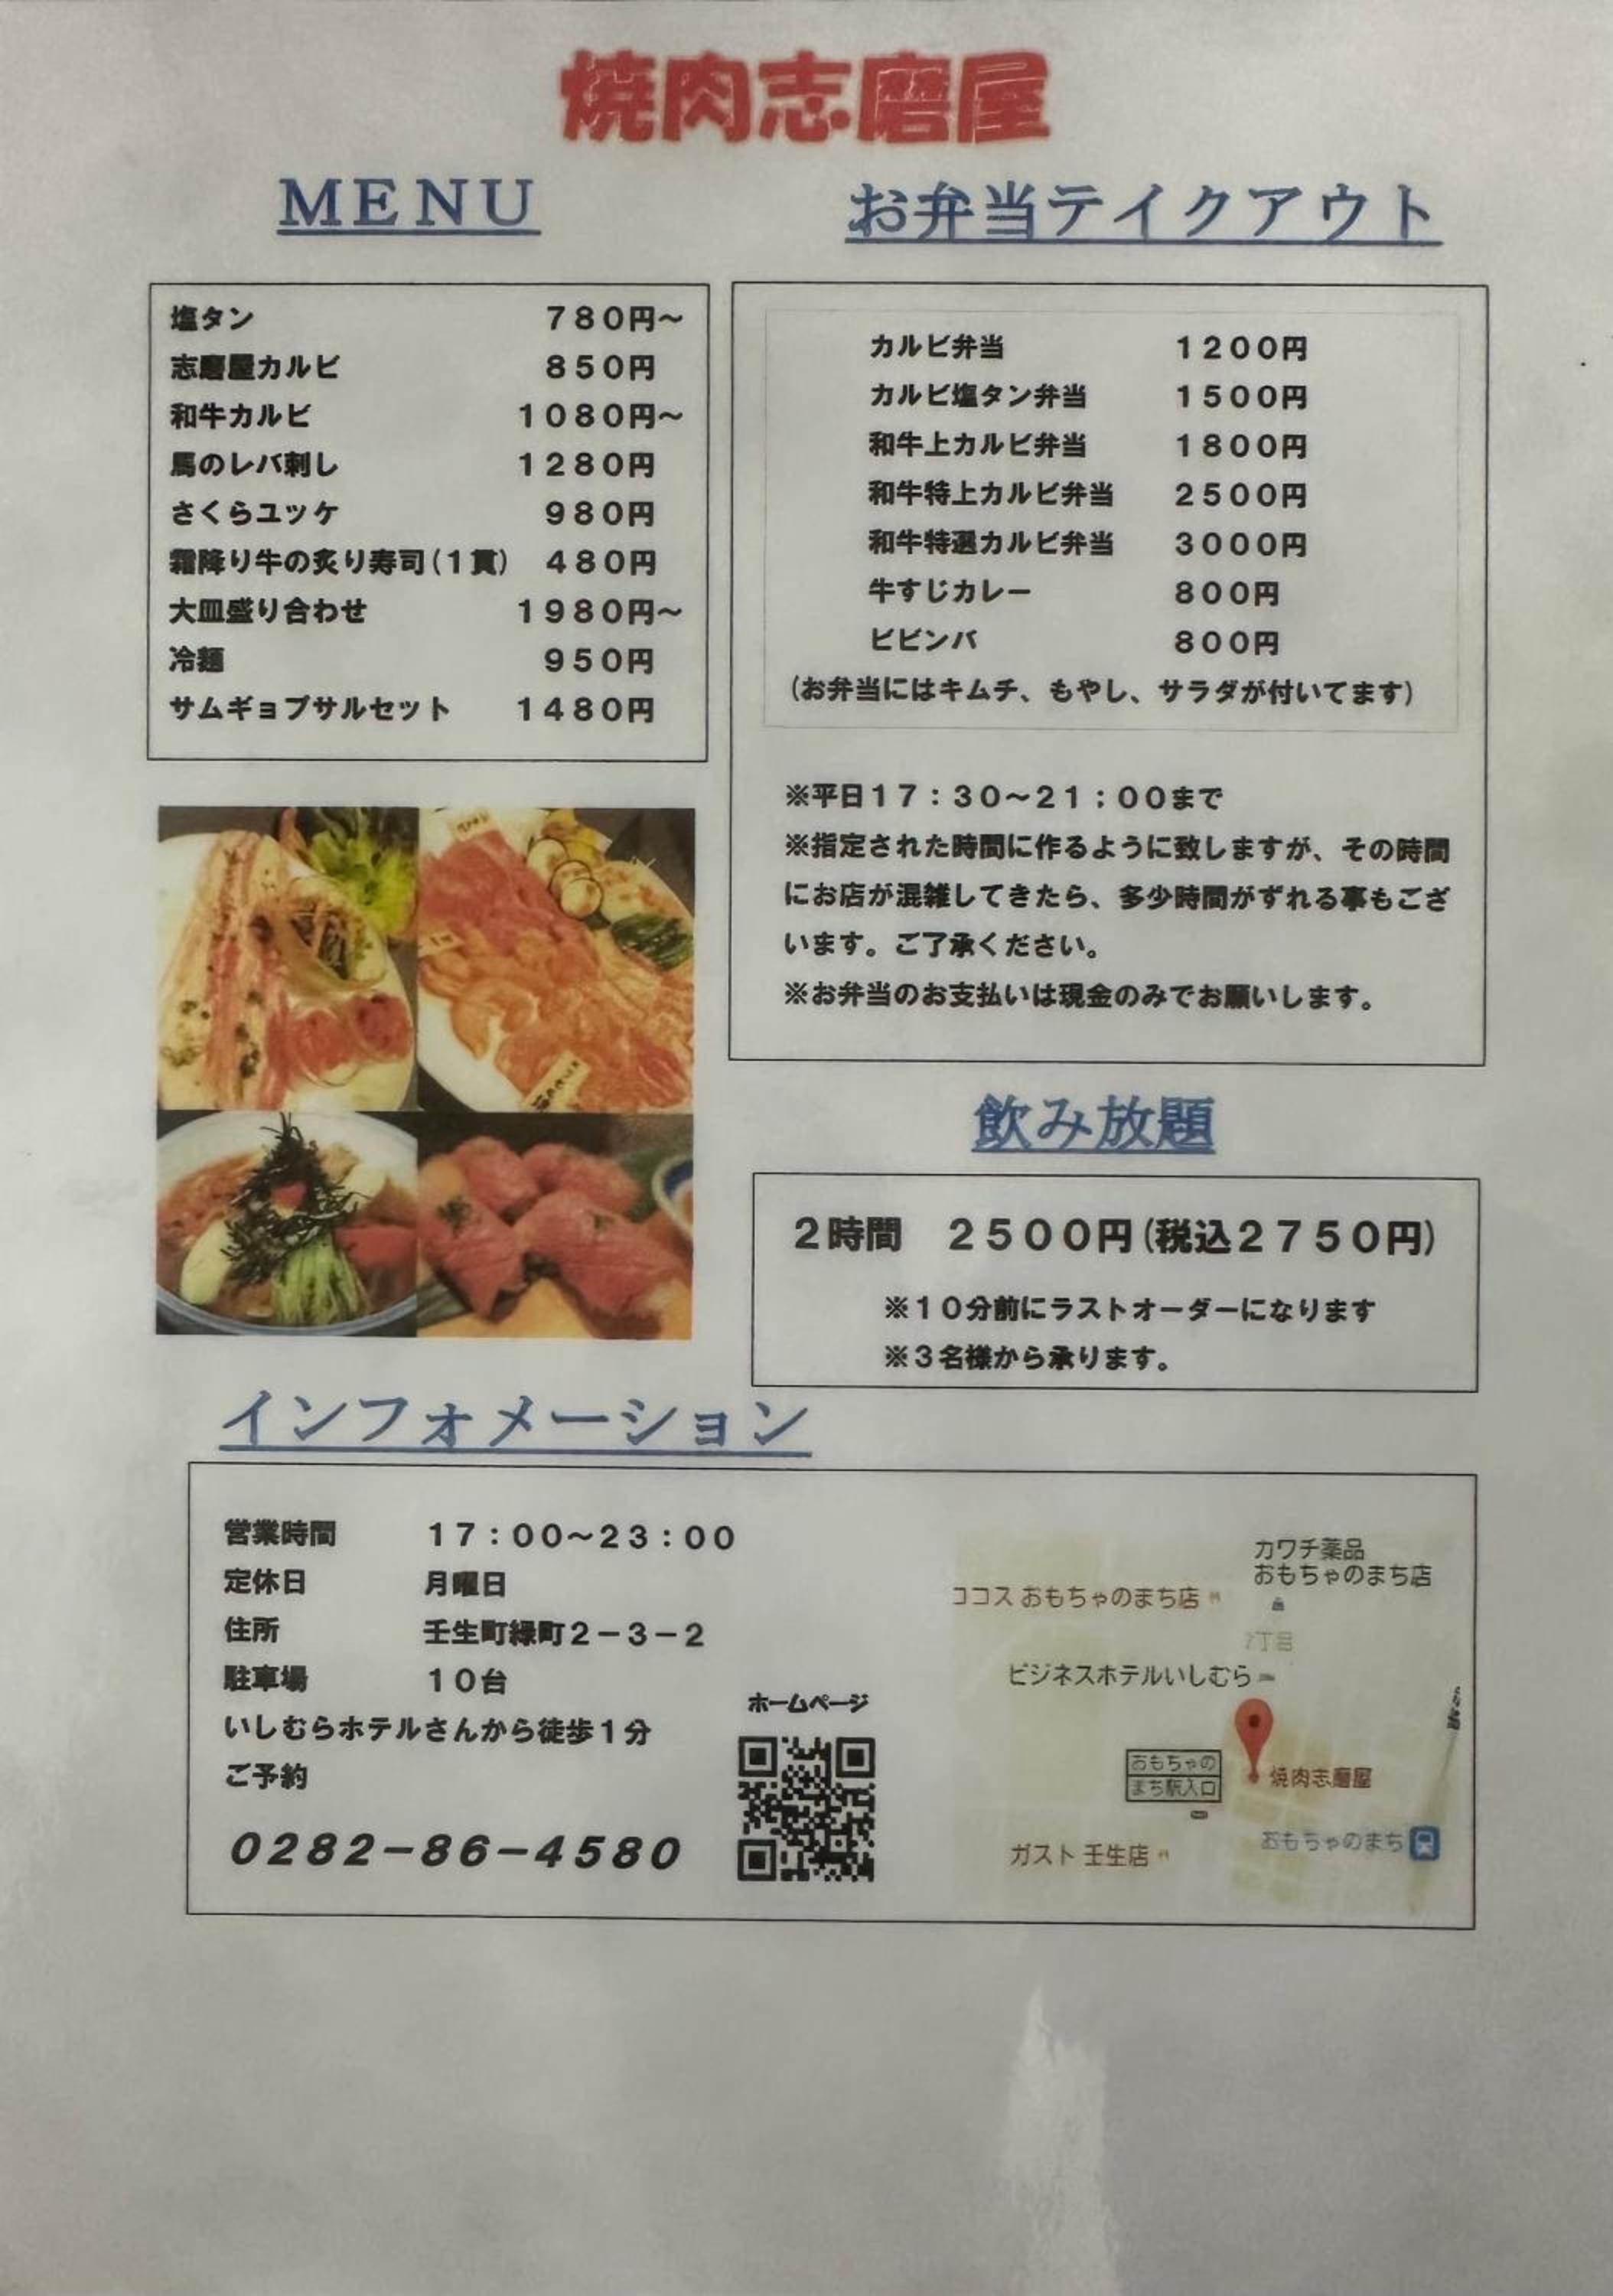 焼肉志磨屋
MENU
塩タン 780円～
志磨屋カルビ 850円
和牛カルビ 1080円～
馬のレバ刺し 1280円
さくらユッケ 980円
霜降り牛の炙り寿司(1貫) 480円
大皿盛り合わせ 1980円～
冷麺 950円
サムギョプサルセット 1480円
お弁当テイクアウト
カルビ弁当 1200円
カルビ塩タン弁当 1500円
和牛上カルビ弁当 1800円
和牛特上カルビ弁当 2500円
和牛特選カルビ弁当 3000円
牛すじカレー 800円
ビビンバ 800円
(お弁当にはキムチ、もやし、サラダが付いてます)
※平日17：30～21：00まで
※指定された時間に作るように致しますが、その時間
にお店が混雑してきたら、多少時間がずれる事もござ
います。ご了承ください。
※お弁当のお支払いは現金のみでお願いします。
飲み放題
2時間 2500円(税込2750円)
※10分前にラストオーダーになります
※3名様から承ります。
インフォメーション
営業時間 17：00～23：00
定休日 月曜日
住所 壬生町緑町2－3－2
駐車場 10台
いしむらホテルさんから徒歩1分
ご予約
0282－86－4580
ホームページ
カワチ薬品
おもちゃのまち店
ココス おもちゃのまち店
丁目
ビジネスホテルいしむら
おもちゃの
まち駅入口
焼肉志磨屋
おもちゃのまち
ガスト 壬生店